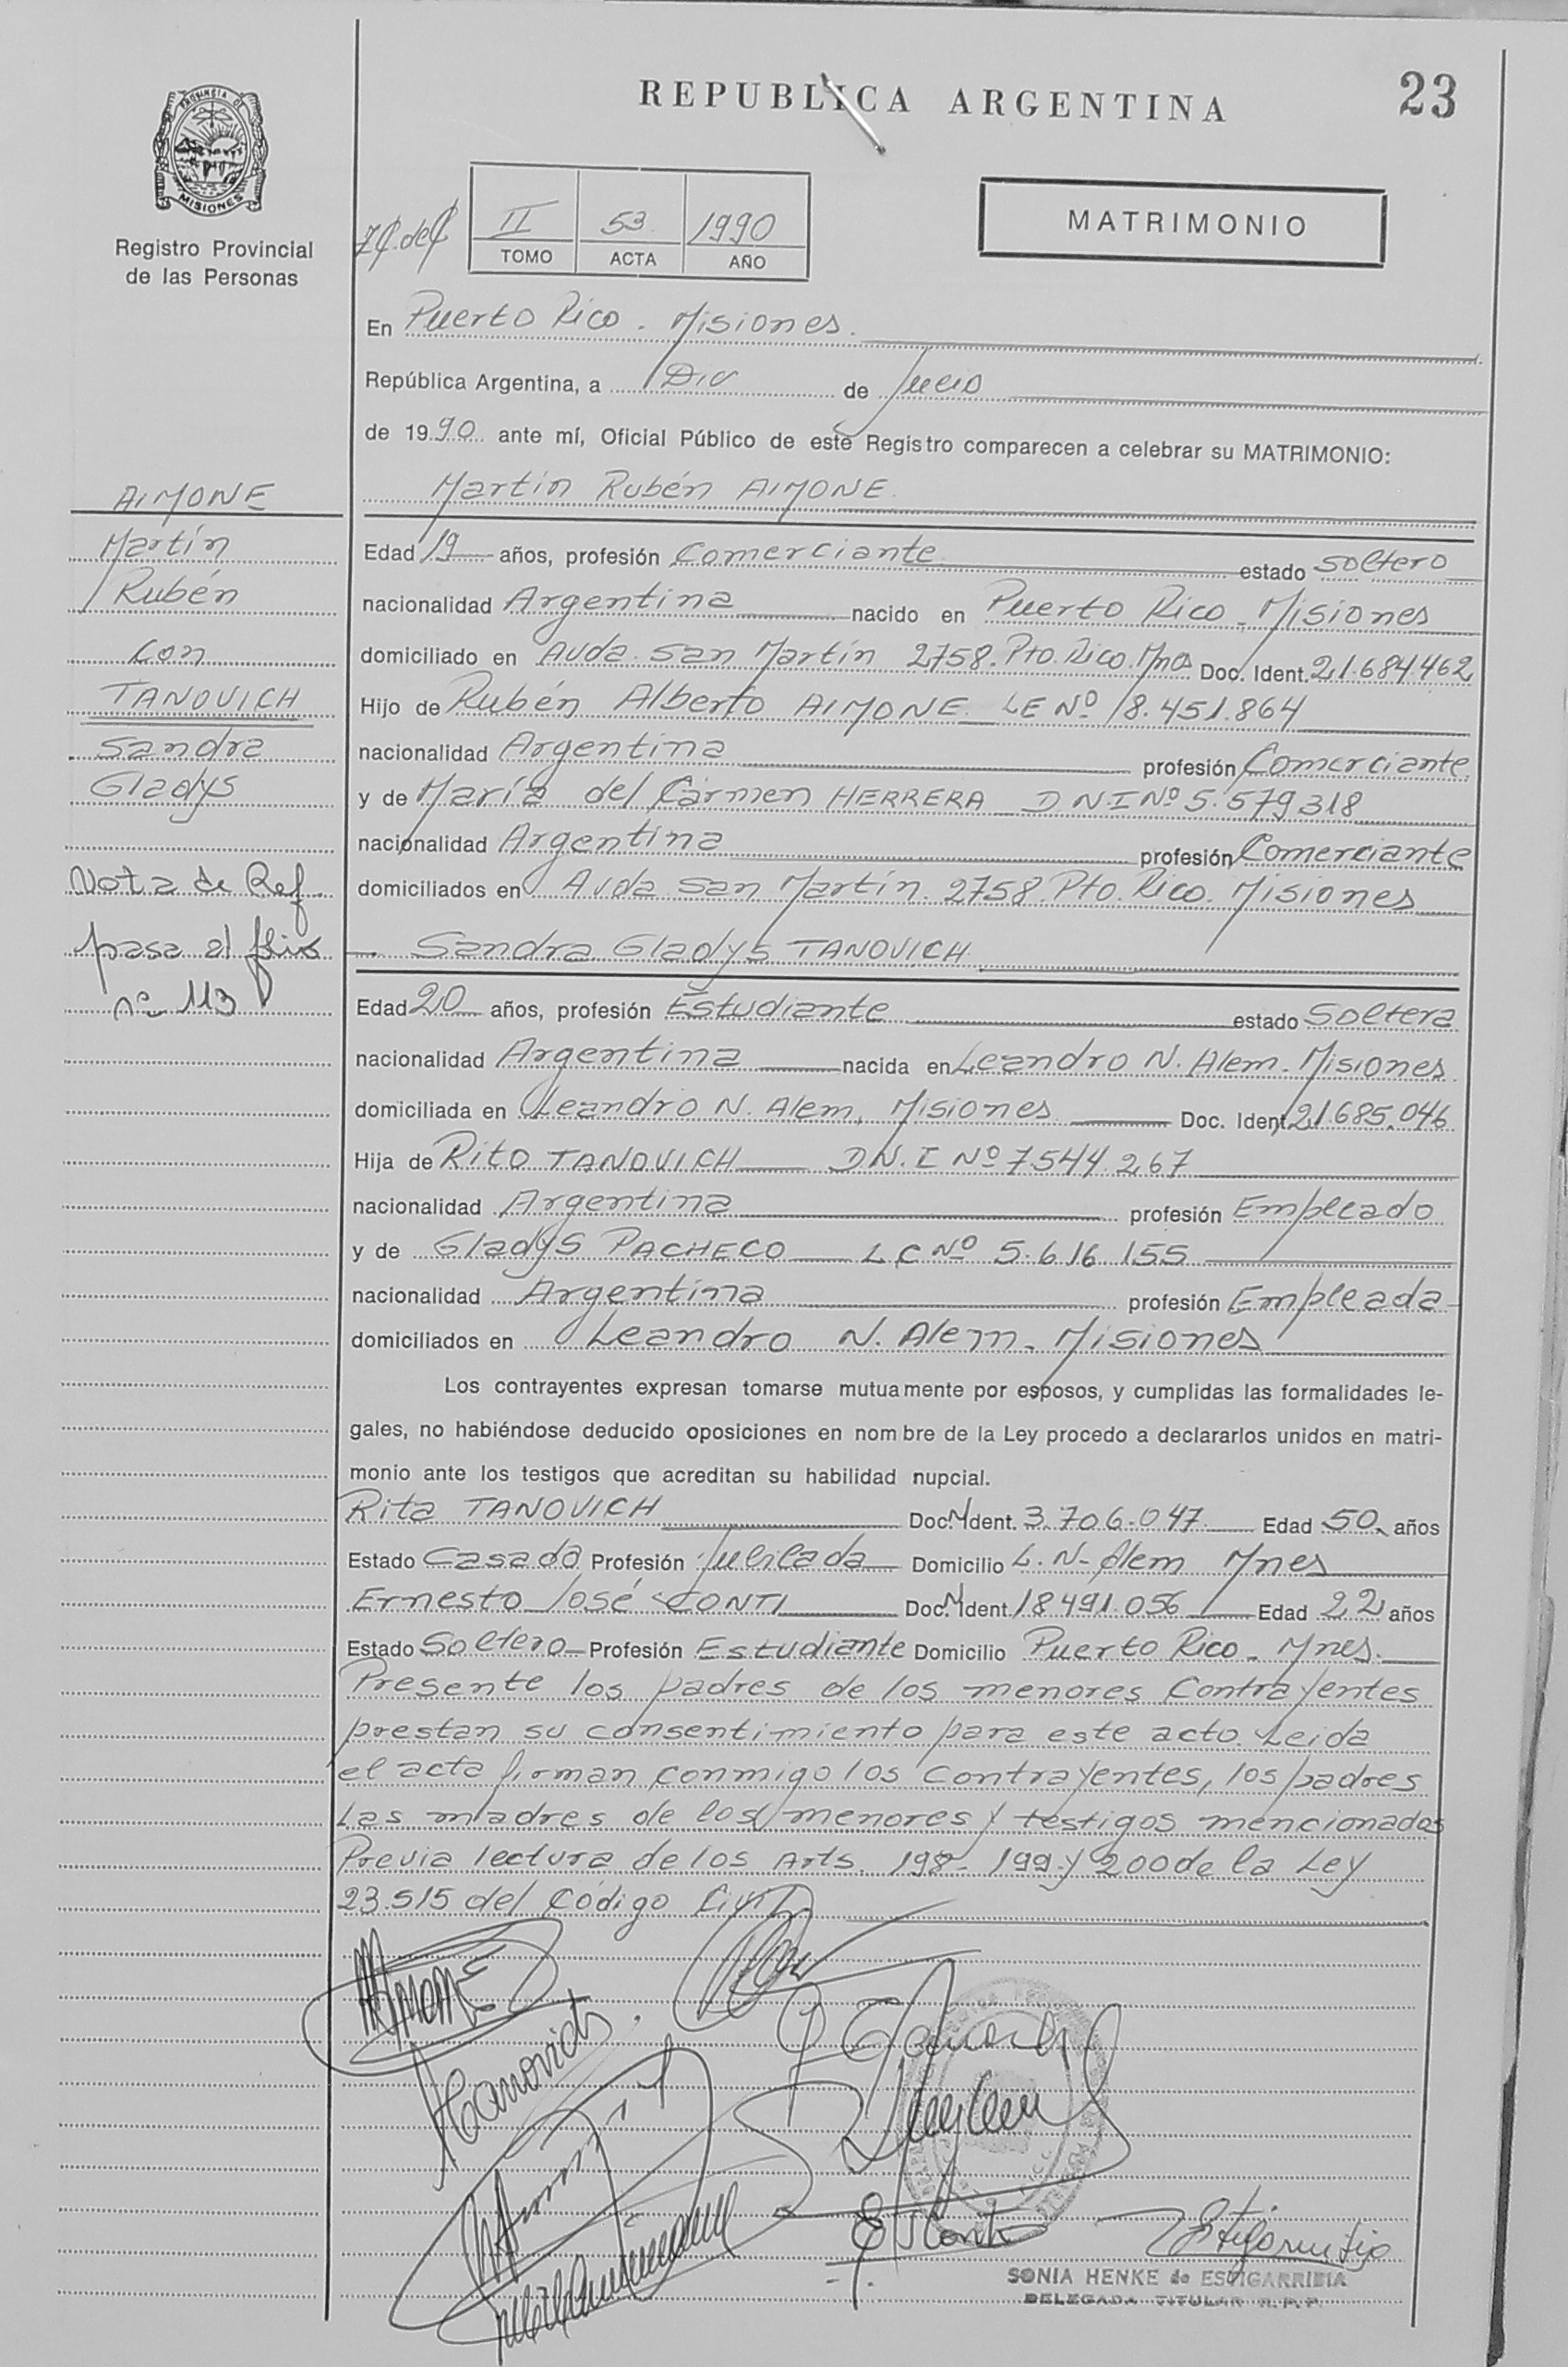 REPUBLICA ARGENTINA
23
PROVINCIA DE
MISIONES
Registro Provincial
de las Personas
II 53 1990
TOMO ACTA AÑO
MATRIMONIO
En Puerto Rico. Misiones.
República Argentina, a de Julio
de 1990 ante mí, Oficial Público de este Registro comparecen a celebrar su MATRIMONIO:
Martín Rubén AIMONE
Edad 19 años, profesión Comerciante estado Soltero
nacionalidad Argentina nacido en Puerto Rico - Misiones
domiciliado en Avda. San Martín 2758. Pto. Rico. Mnes Doc. Ident. 21.684.462
Hijo de Rubén Alberto AIMONE LE Nº 8.451.864
nacionalidad Argentina profesión Comerciante
y de María del Cármen HERRERA DNI Nº 5.579318
nacionalidad Argentina profesión Comerciante
domiciliados en Avda San Martín. 2758. Pto. Rico. Misiones
Sandra Gladys TANOVICH
Edad 20 años, profesión Estudiante estado Soltera
nacionalidad Argentina nacida en Leandro N. Alem - Misiones
domiciliada en Leandro N. Alem, Misiones Doc. Ident. 21.685.046
Hija de Rito TANOVICH D.N.I Nº 7544.267
nacionalidad Argentina profesión Empleado
y de Gladys PACHECO LC Nº 5.616.155
nacionalidad Argentina profesión Empleada
domiciliados en Leandro N. Alem - Misiones
Los contrayentes expresan tomarse mutuamente por esposos, y cumplidas las formalidades le-
gales, no habiéndose deducido oposiciones en nombre de la Ley procedo a declararlos unidos en matri-
monio ante los testigos que acreditan su habilidad nupcial.
Rita TANOVICH Doc. Ident. 3.706.047 Edad 50 años
Estado Casada Profesión Jubilada Domicilio L. N. Alem Mnes
Ernesto José CONTI Doc. Ident 18491.056 Edad 22 años
Estado Soltero Profesión Estudiante Domicilio Puerto Rico - Mnes.
Presente los padres de los menores Contrayentes
prestan su consentimiento para este acto. Leida
el acta firman conmigo los Contrayentes, los padres
las madres de los menores y testigos mencionados
Previa lectura de los Arts. 198 - 199 y 200 de la Ley
23.515 del Código Civil
SONIA HENKE de ESTIGARRIBIA
DELEGADA TITULAR R.P.P.
AIMONE
Martín
Rubén
con
TANOVICH
Sandra
Gladys
Nota de Ref.
pasa al folio
nº 113